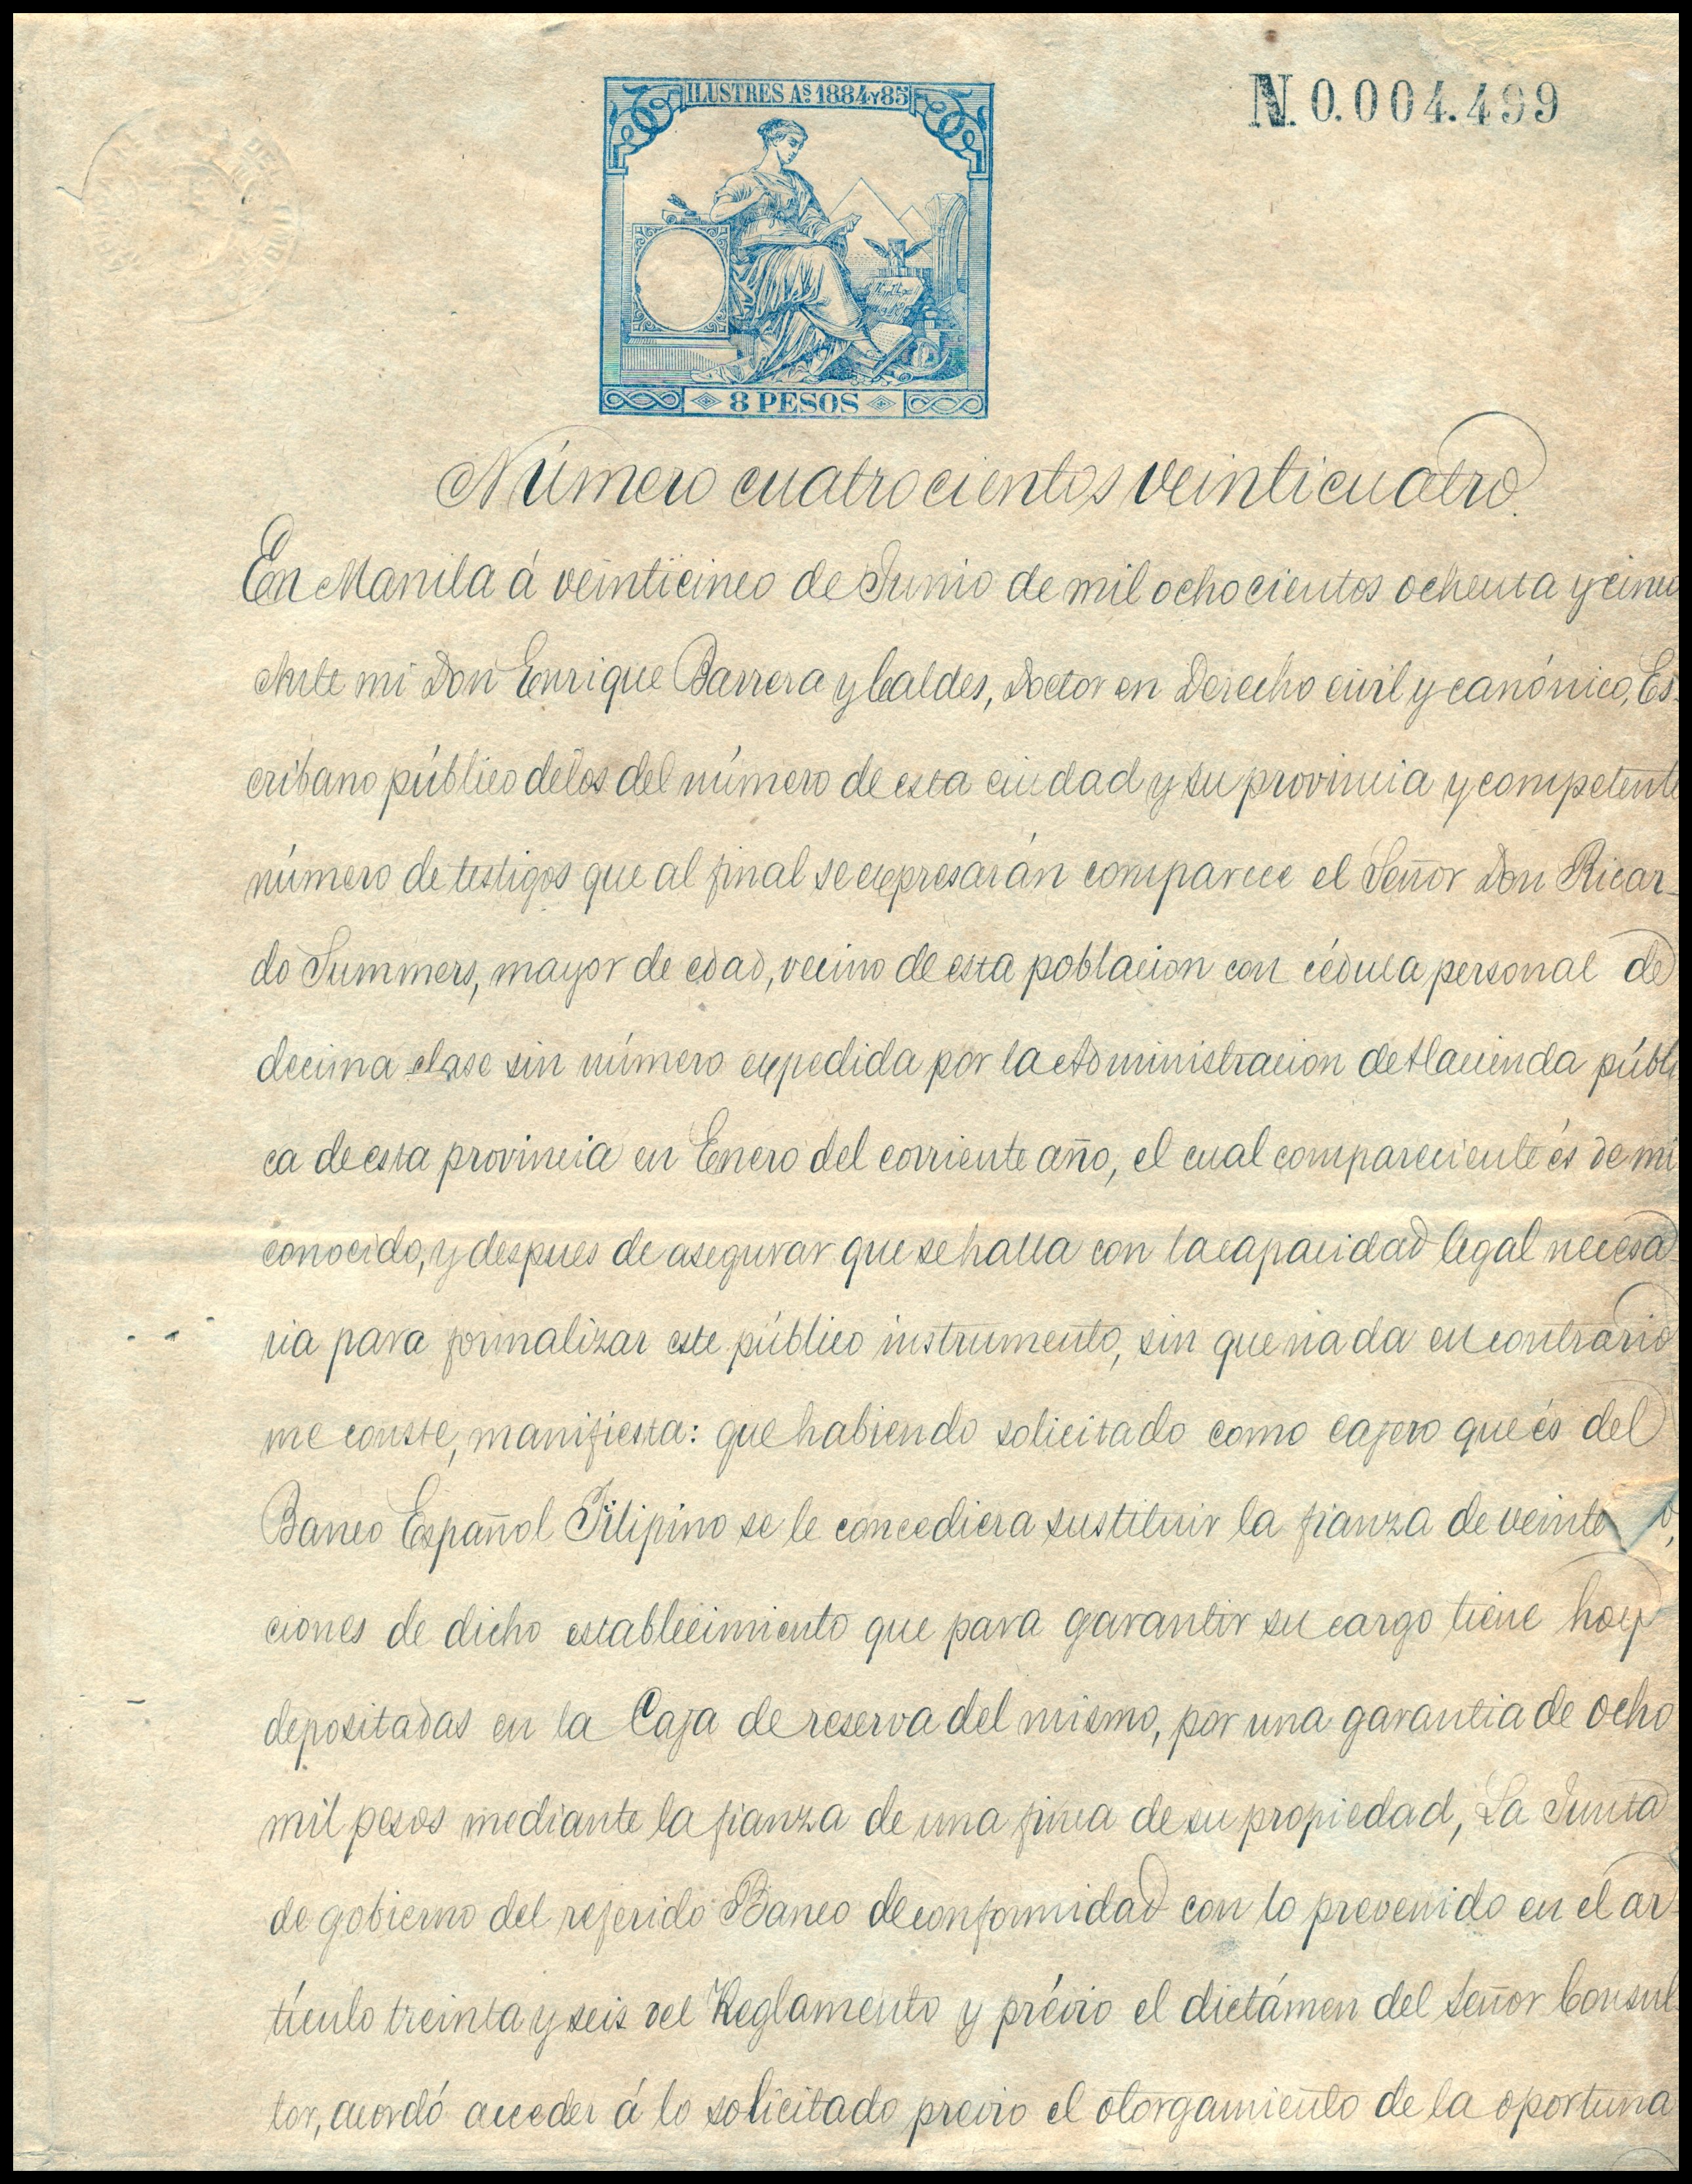 ILUSTRES As. 1884 Y 85
N. 0.004.499
8 PESOS
Número cuatrocientos veinticuatro.
En Manila á veinticinco de Junio de mil ochocientos ochenta y cinco
Ante mi Don Enrique Barrera y Caldes, Doctor en Derecho civil y canónico, Es-
cribano público de los del número de esta ciudad y su provincia y competente
número de testigos que al final se expresarán comparece el Señor Don Ricar-
do Summers, mayor de edad, vecino de esta poblacion con cédula personal de
decima clase sin número expedida por la Administracion de Hacienda públi
ca de esta provincia en Enero del corriente año, el cual compareciente és de mi
conocido, y despues de asegurar que se halla con la capacidad legal necesa-
ria para formalizar este público instrumento, sin que nada en contrario
me conste, manifiesta: que habiendo solicitado como cajero que és del
Banco Español Filipino se le concediera sustituir la fianza de veinte
ciones de dicho establecimiento que para garantir su cargo tiene hoy
depositadas en la Caja de reserva del mismo, por una garantia de ocho
mil pesos mediante la fianza de una finca de su propiedad, La Junta
de gobierno del referido Banco de conformidad con lo prevenido en el ar-
tículo treinta y seis del Reglamento y prévio el dictámen del Señor Consul-
tor, acordó acceder á lo solicitado previo el otorgamiento de la oportuna